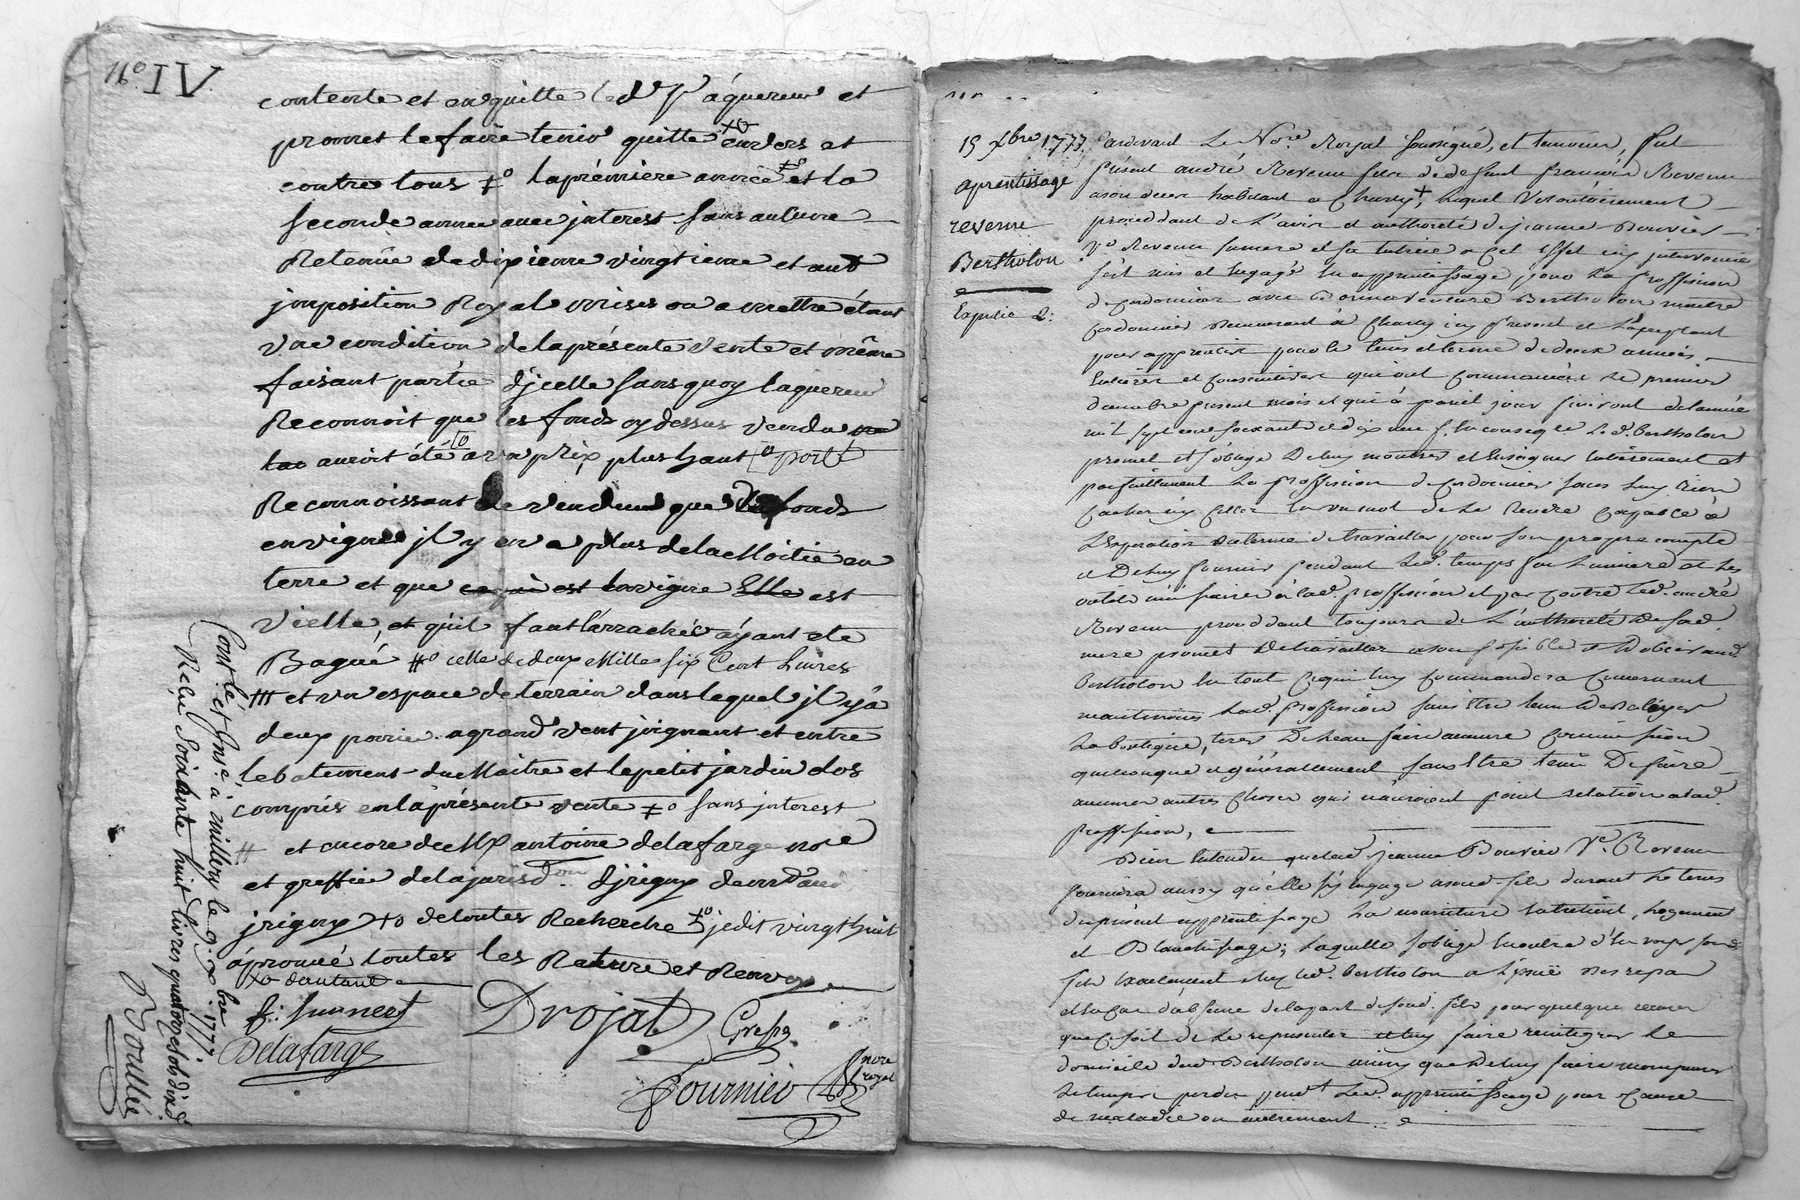 N.º IV.
contente et en quitte led. Sr. áquereur et
promet le faire tenir quitte envers et
contre tous ‡o la prémiere année et la
seconde année avec jnterest sans aucune
Retenüe de dixieme vingtieme et aut
jmposition Royal mises ou a mettre étant
une condition de la présente vente et même
faisant partie d'jcelle sans quoy laquereur
Reconnoit que les fonds cy dessus vendu
auroit été a un prix plus haut porté
Reconnoissant le vendeur que fonds
en vigne jl y en a plus de la Moitié en
terre et que la vigne Elle est
vielle, et qu'il faut l'arracher áyant ete
Bagué #o celle de deux Mille six Cent Livres
et un espace de terrain dans lequel jl y á
deux poirie. a grand vent joignant et entre
le batiment du Maitre et le petit jardin clos
compris en la présente vente ‡o sans jnterest
# et encore de Me antoine delafarge nore
et greffier de la jurisdon. d'jrigny demt aud
jrigny xo de toutes Recherche jedit vingt huit
áprouvé toutes les Rature et Renvoy
xo d'autant
Drojat Grepa
Delafarge
fournier nore royal
Cont.lé et Jnsé. à millery le 9. xbre 1777.
Reçu Soixante huit livres quatorze sols six d.
Boullée
15 xbre 1777.
aprentissage
revenu
Bertholon
Expedié 2.
Pardevant Le No.re Royal soussigné, et temoins, fut
présent andré Revenu fils de defunt françois Revenu
a son deces habitant a Charly, lequel Volontairement
procedant de L'avis et authorité de jeanne Bouvier
Ve. Revenu sa mere et sa tutrice a cet effet icy intervenue
s'est mis et Engagé En apprentissage pour La proffession
de Cordonnier avec Bonnaventure Bertholon maitre
Cordonnier demeurant à Charly icy present et L'acceptant
pour apprentix pour le tems et terme de deux années
Entieres et Consecutives qui ont Commancées Le premier
decembre present mois et qui à pareil jour finiront de L'année
mil sept cent soixante et dix neuf. En consequce. Led. Bertholon
promet et s'oblige De luy montrer et Enseigner Entierement et
parfaitement La proffession de Cordonnier sans luy rien
Cacher icy Celler En un mot de Le Rendre Capable à
L'Expiration du terme de travailler pour son propre compte
et De luy fournir pendant Led. temps son Lumiere et Les
outils necessaires à lad. proffession et par Contre Led. andré
Revenu proceddant toujours de L'authorité De sad.
mere promet De travailler a son possible et D'obeir aud.
Bertholon En tout Ce qui luy Commandera Concernant
neantmoins Lad. proffession sans Etre tenu De balayer
La boutique, tirer De L'eau faire aucune Commission
quelconque et généralement sans Etre tenu De faire
aucunes autres Choses qui n'auroient point relation a lad.
proffession,
Bien Entendu que lad. jeanne Bouvier Ve. Revenu
fournira aussy qu'elle s'y Engage a sond. fils durant Le tems
du present apprentissage La nourriture Entretient, Logement
et Blanchissage; Laquelle s'oblige Encore d'En voyer sond.
fils Exactement chez led. Bertholon a L'issuë des repas
et En Cas d'absence de la part de sond. fils pour quelque cause
que Ce soit de Le representer et luy faire reintegrer Le
domicile dud. Bertholon ainsy que De luy faire recompenser
Le temps perdu pendt. Led. apprentissage pour Cause
de maladie ou autrement.